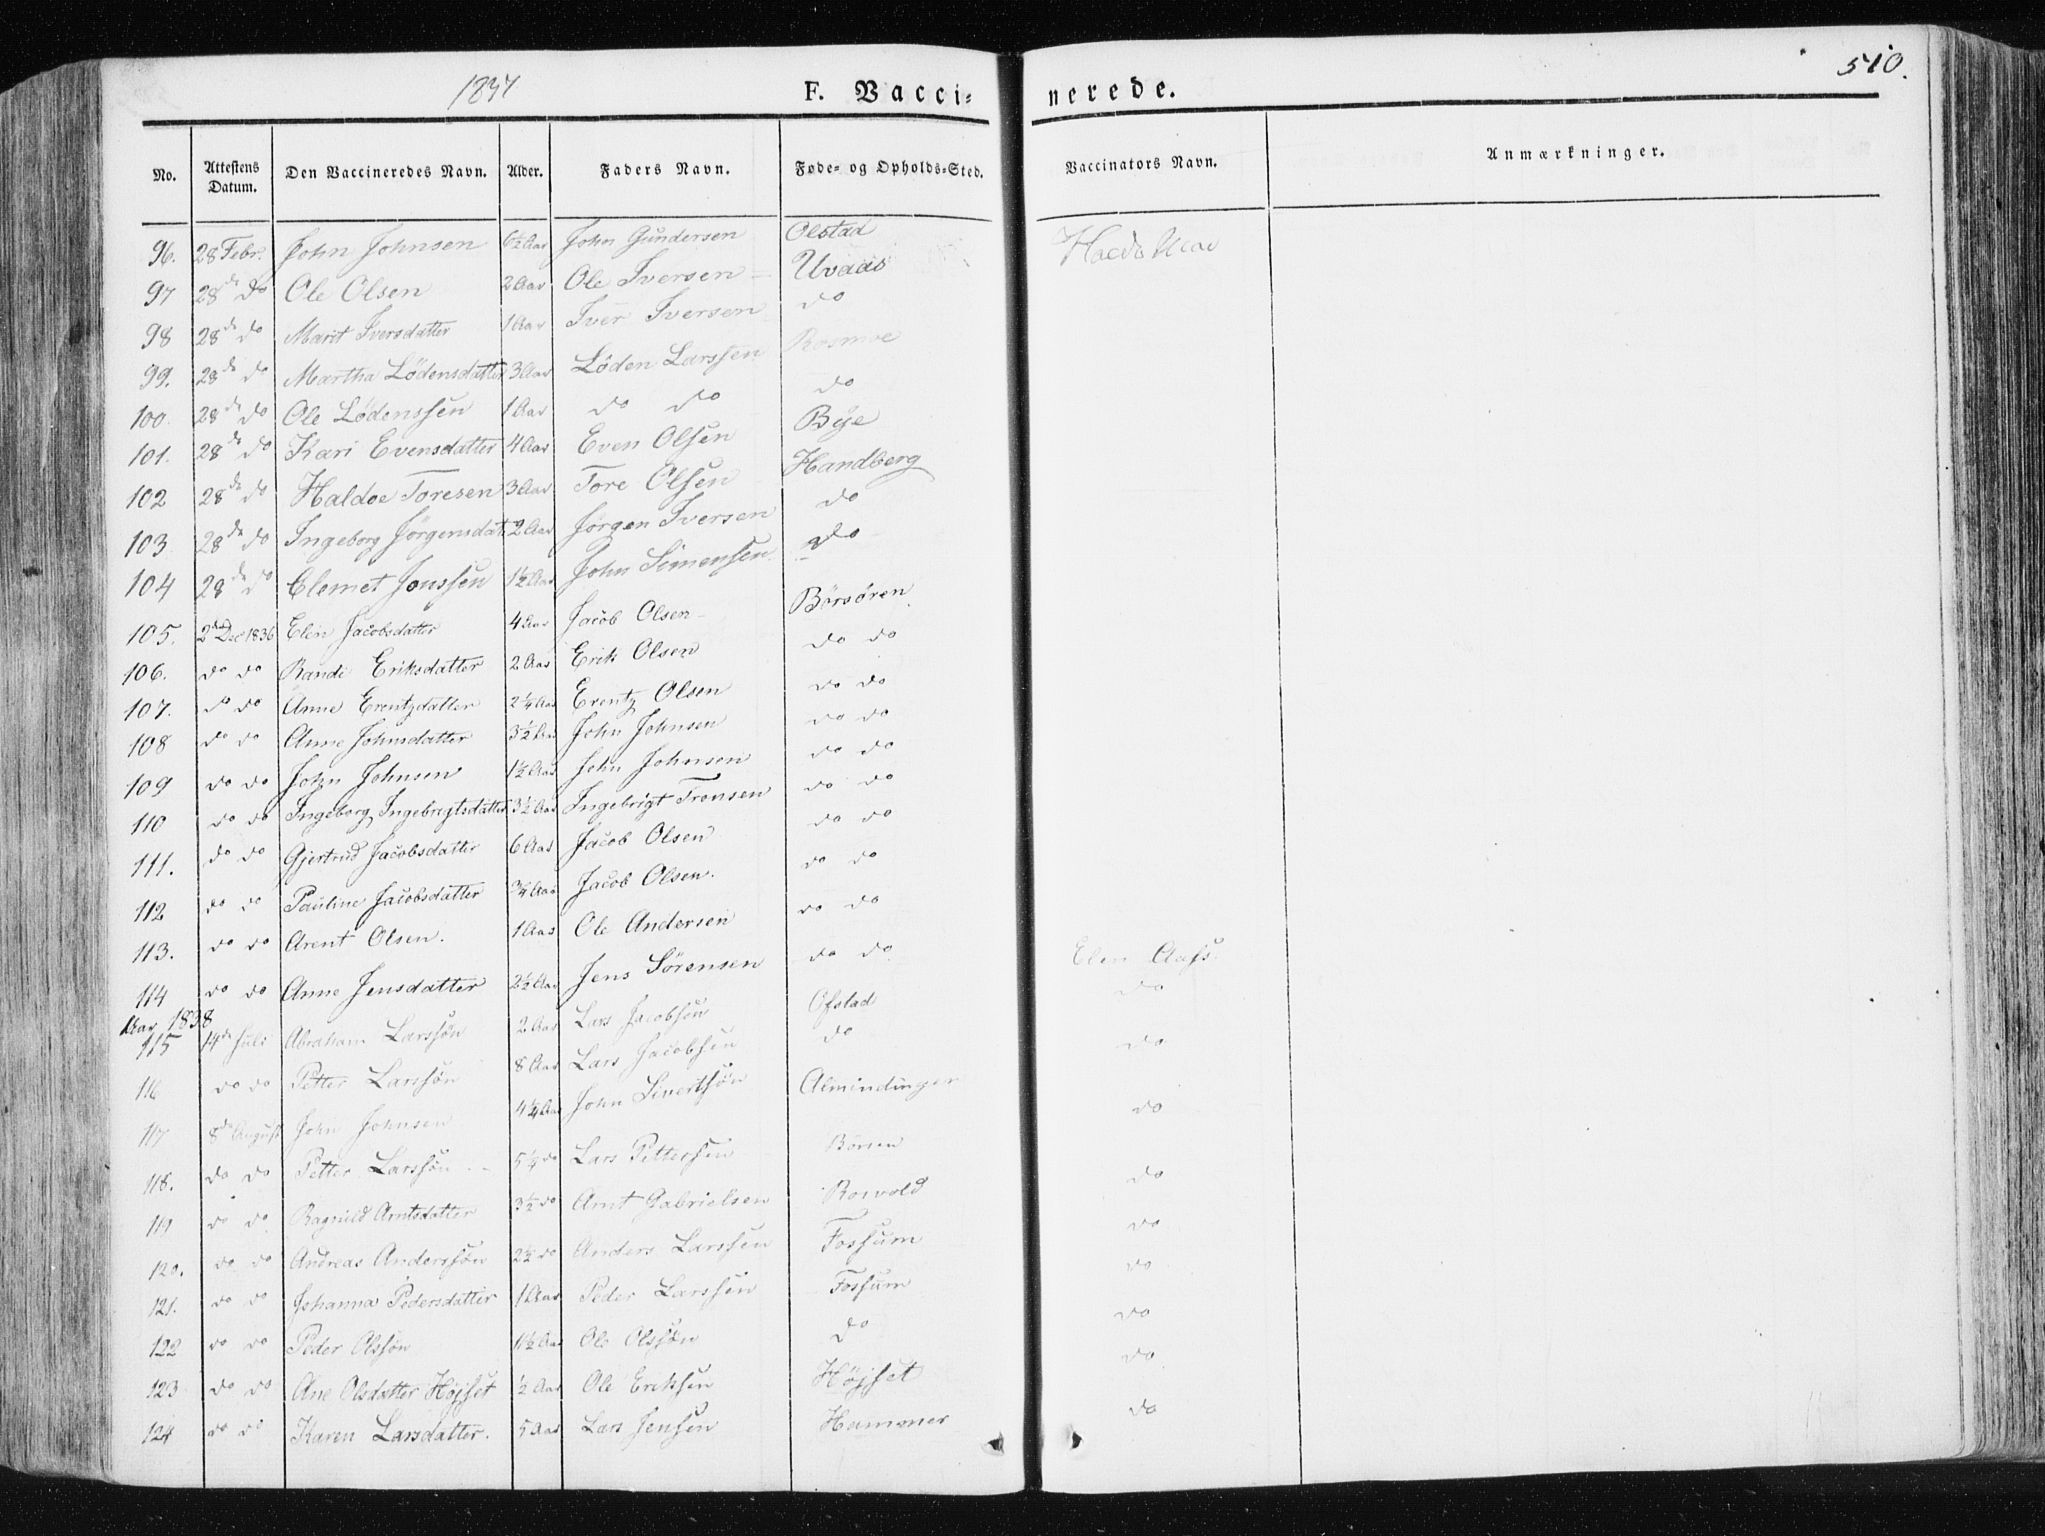 1837 F. Vacci= nerede. 510.
No. Attestens Datum. Den Vaccineredes Navn. Alder. Faders Navn. Føde= og Opholds=Sted. Vaccinators Navn. Anmærkninger.
96. 28 Febr. John Johnsen 6½ Aar John Gundersen Olstad
97 28 de do Ole Olsen 2 Aar Ole Iversen Uvaas
98 28 de do Marit Iversdatter 1 Aar Iver Iversen do
99. 28 de do Martha Lødensdatter 3 Aar Løden Larssen
100. 28 de do Ole Lødenssen 1 Aar do do do
101. 28 de do Kari Evensdatter 4 Aar Even Olsen Bye
102 28 de do Haldoe Toresen 3 Aar Tore Olsen Handberg
103 28 de do Ingeborg Jørgensdat 2 Aar Jørgen Iversen do
104 28 de do Clemet Jonssen 1½ Aar John Simensen do
105. 2 Dec 1836 Elen Jacobsdatter 4 Aar Jacob Olsen Börsören
106. do do Randi Eriksdatter 2 Aar Erik Olsen do do
107. do do Anne Erentzdatter 2¼ Aar Erentz Olsen do do
108 do do Anne Johnsdatter 3½ Aar John Johnsen do do
109 do do John Johnsen 1½ Aar John Johnsen do do
110 do do Ingeborg Ingebrigtsdatter 3½ Aar Ingebrigt Tronsen do do
111. do do Gjertrud Jacobsdatter 6 Aar Jacob Olsen do do
112 do do Pauline Jacobsdatter ¾ Aar Jacob Olsen. do do
113. do do Arent Olsen. 1 Aar Ole Andersen do do
114 do do Anne Jensdatter 2½ Aar Jens Sörensen do do Elen Aass.
Aar 1838
115 14 de Juli Abraham Larssön 2 Aar Lars Jacobsen Ofstad do
116 do do Petter Larssön 8 Aar Lars Jacobsen do do
117 8 de August John Johnsen 4¼ Aar John Sivertsön Almindinger do
118. do do Petter Larssön 5¼ do Lars Pettersen Börsen do
119 do do Ragnild Arntsdatter 3½ do Arnt Gabrielsen Rosvold do
120. do do Andreas Anderssön 2½ do Anders Larssen Fossum do
121. do do Johanna Pedersdatter 1 Aar Peder Larssen Fossum do
122 do do Peder Olssön 1½ Aar Ole Olssön do do
123 do do Ane Olsdatter Höjset ½ Aar Ole Eriksen Höjset do
124 do do Karen Larsdatter. 5 Aar Lars Jensen Hammer